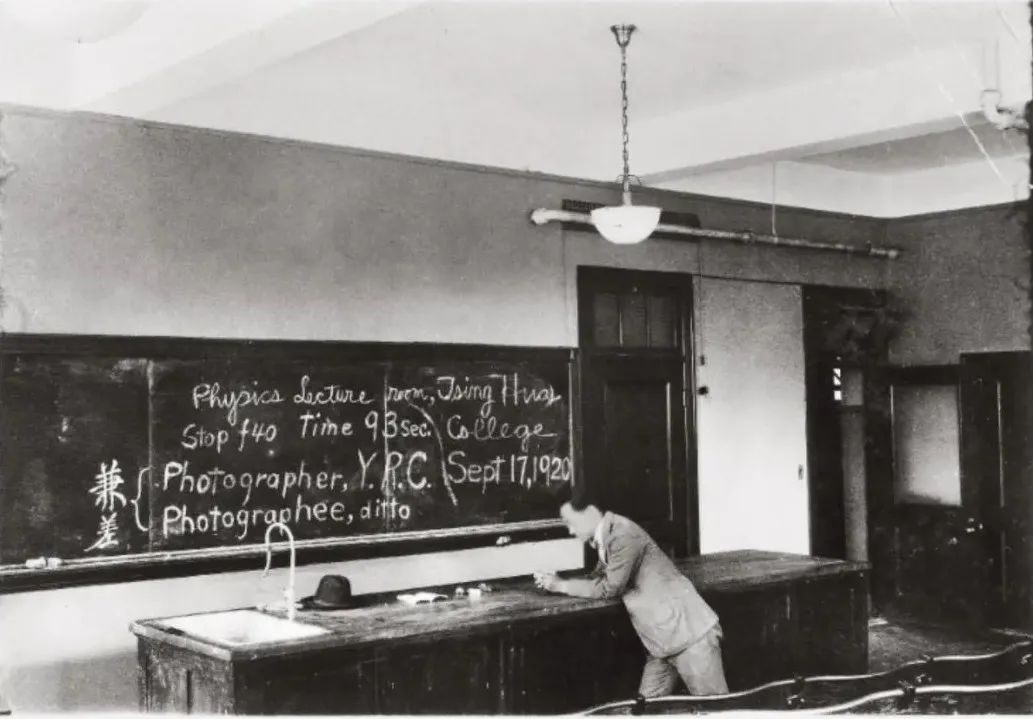 Physics Lecture room, Tsing Hua
Stop f40 Time 93 sec. College
兼差 { Photographer, Y. R. C. Sept 17, 1920
Photographee, ditto